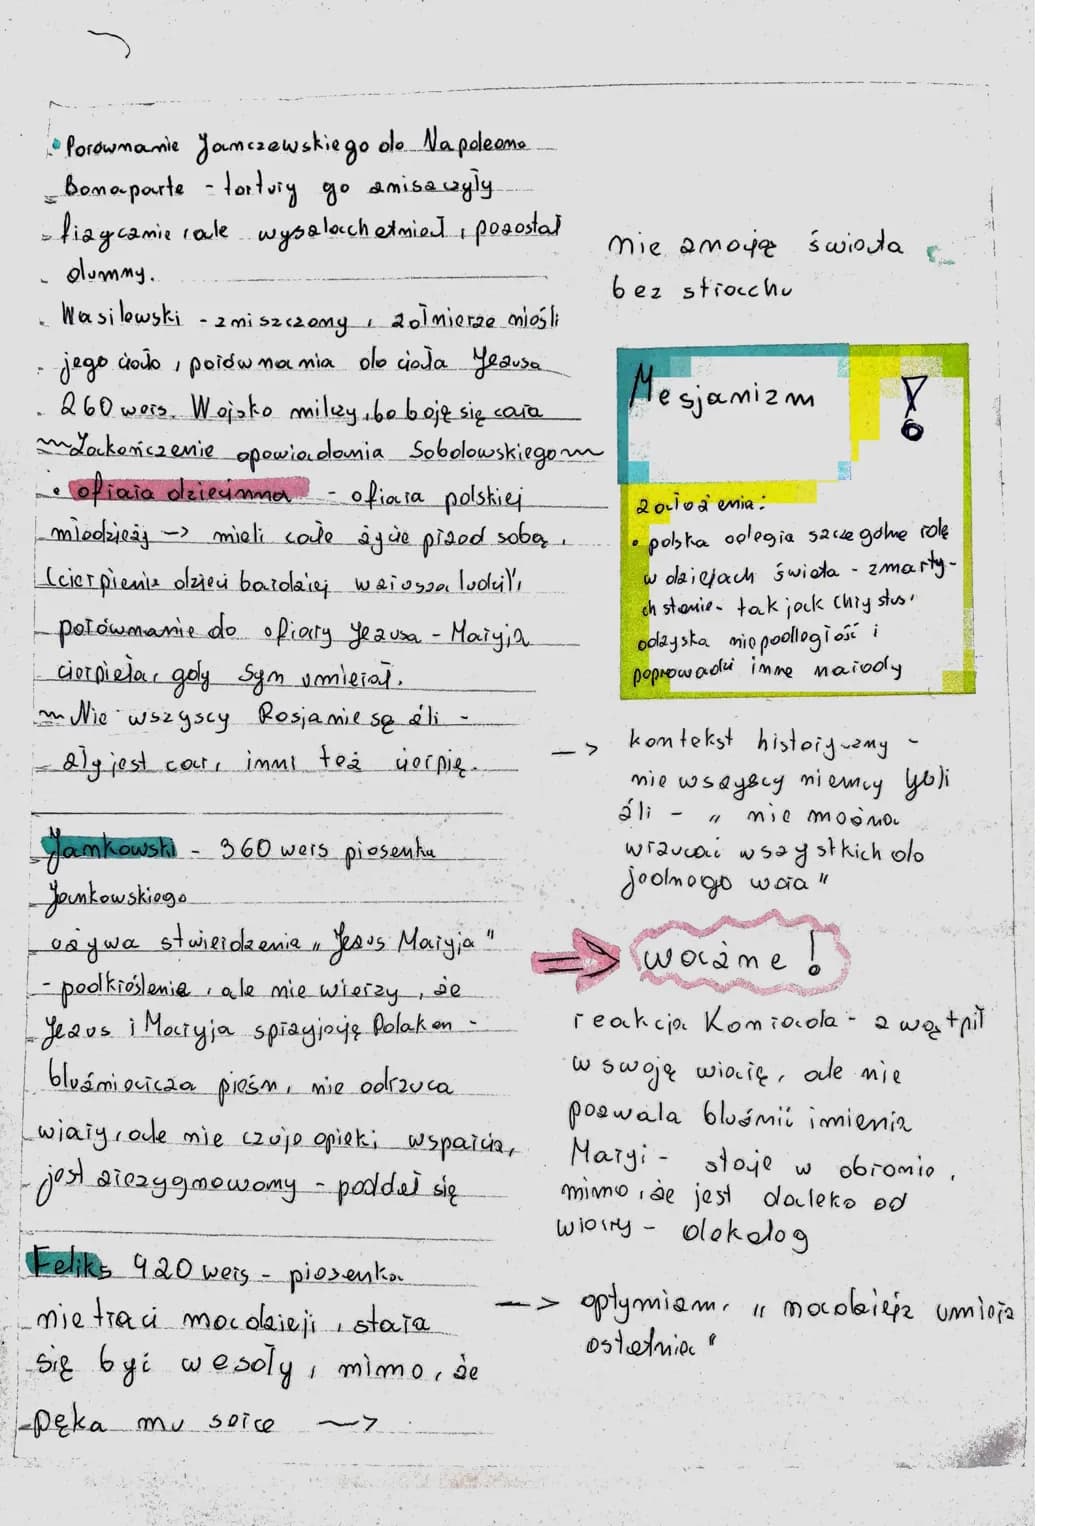 • Porównanie Janczewskiego do Napoleona
Bonaparte - tortury go zniszczyły
fizycznie, ale wyszlachetniał, pozostał
dumny.
Wasilewski - zniszczony, żołnierze nieśli
jego ciało, porównania do ciała Jezusa
260 wers. Wojsko milczy, bo boję się cara
~ Zakończenie opowiadania Sobolowskiego ~
• ofiara dziecinna - ofiara polskiej
młodzieży -> mieli całe życie przed sobą,
(cierpienie dzieci bardziej wzrusza ludzi),
porównanie do ofiary Jezusa - Maryja
cierpiała, gdy Syn umierał.
~ Nie wszyscy Rosjanie są źli -
zły jest car, inni też cierpią.
Jankowski - 360 wers piosenka
Jankowskiego
używa stwierdzenia „Jezus Maryja"
- podkreślenie, ale nie wierzy, że
Jezus i Maryja sprzyjają Polakom -
bluźniercza pieśń, nie odrzuca
wiary, ale nie czuje opieki, wsparcia,
jest zrezygnowany - poddał się
Feliks 420 wers - piosenka
nie traci nadzieji, stara
się być wesoły, mimo, że
pęka mu serce ~>
nie znają świata
bez strachu
Mesjanizm !
założenia:
• polska odegra szczególne rolę
w dziejach świata - zmarty-
chstanie - tak jak Chrystus,
odzyska niepodległość i
poprowadzi inne narody
-> kontekst historyczny -
nie wszyscy niemcy byli
źli - „nie można
wrzucać wszystkich do
jednego wora"
=> ważne !
reakcja Konrada - zwątpił
w swoją wiarę, ale nie
pozwala bluźnić imienia
Maryi - staje w obronie,
mimo, że jest daleko od
wiary - dekalog
-> optymizm, „nadzieja umiera
ostatnia"